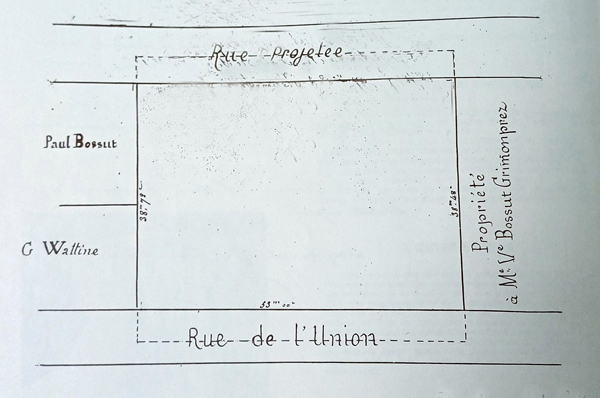 Rue Projetée
Paul Bossut
G Wattine
38ᵐ 78ᶜ
Propriété
à Mᵉ Vᵉ Bossut Grimonprez
53ᵐ 00ᶜ
Rue de l'Union